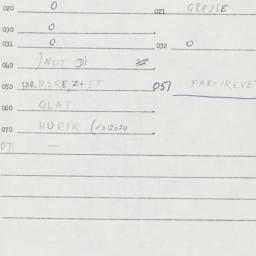 020 0 021 GREJSE
030 0
031 0 032 0
040 )NUT Di
050 051 PARCIREVE
060 GLAT
070 HUDIK (1012070
071 —